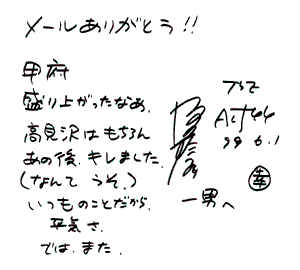 メールありがとう!!
甲府
盛り上がったなあ.
高見沢はもちろん
あの後、キレました.
(なんて うそ.)
いつものことだから.
平気さ.
では、また.
一男へ
ALFEE
99. 6. 1
幸